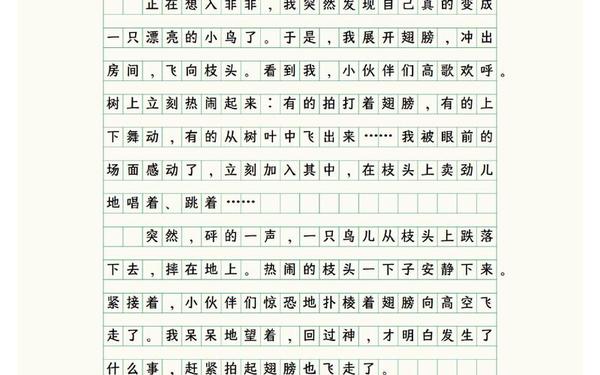 正在想入非非，我突然发现自己真的变成
一只漂亮的小鸟了。于是，我展开翅膀，冲出
房间，飞向枝头。看到我，小伙伴们高歌欢呼。
树上立刻热闹起来：有的拍打着翅膀，有的上
下舞动，有的从树叶中飞出来……我被眼前的
场面感动了，立刻加入其中，在枝头上卖劲儿
地唱着、跳着……
突然，砰的一声，一只鸟儿从枝头上跌落
下去，摔在地上。热闹的枝头一下子安静下来。
紧接着，小伙伴们惊恐地扑棱着翅膀向高空飞
走了。我呆呆地望着，回过神，才明白发生了
什么事，赶紧拍起翅膀也飞走了。